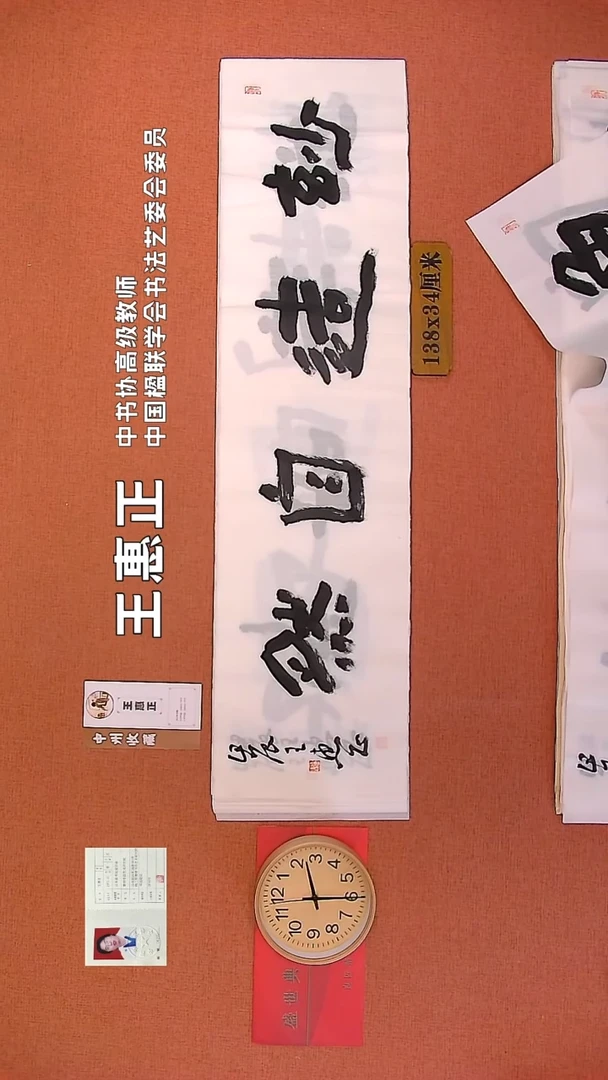 中书协高级教师
中国楹联学会书法艺委会委员
王惠正
玅造自然
甲辰王惠正
138x34厘米
王惠正
中州收藏
盛世典
12
1
2
3
4
5
6
7
8
9
10
11